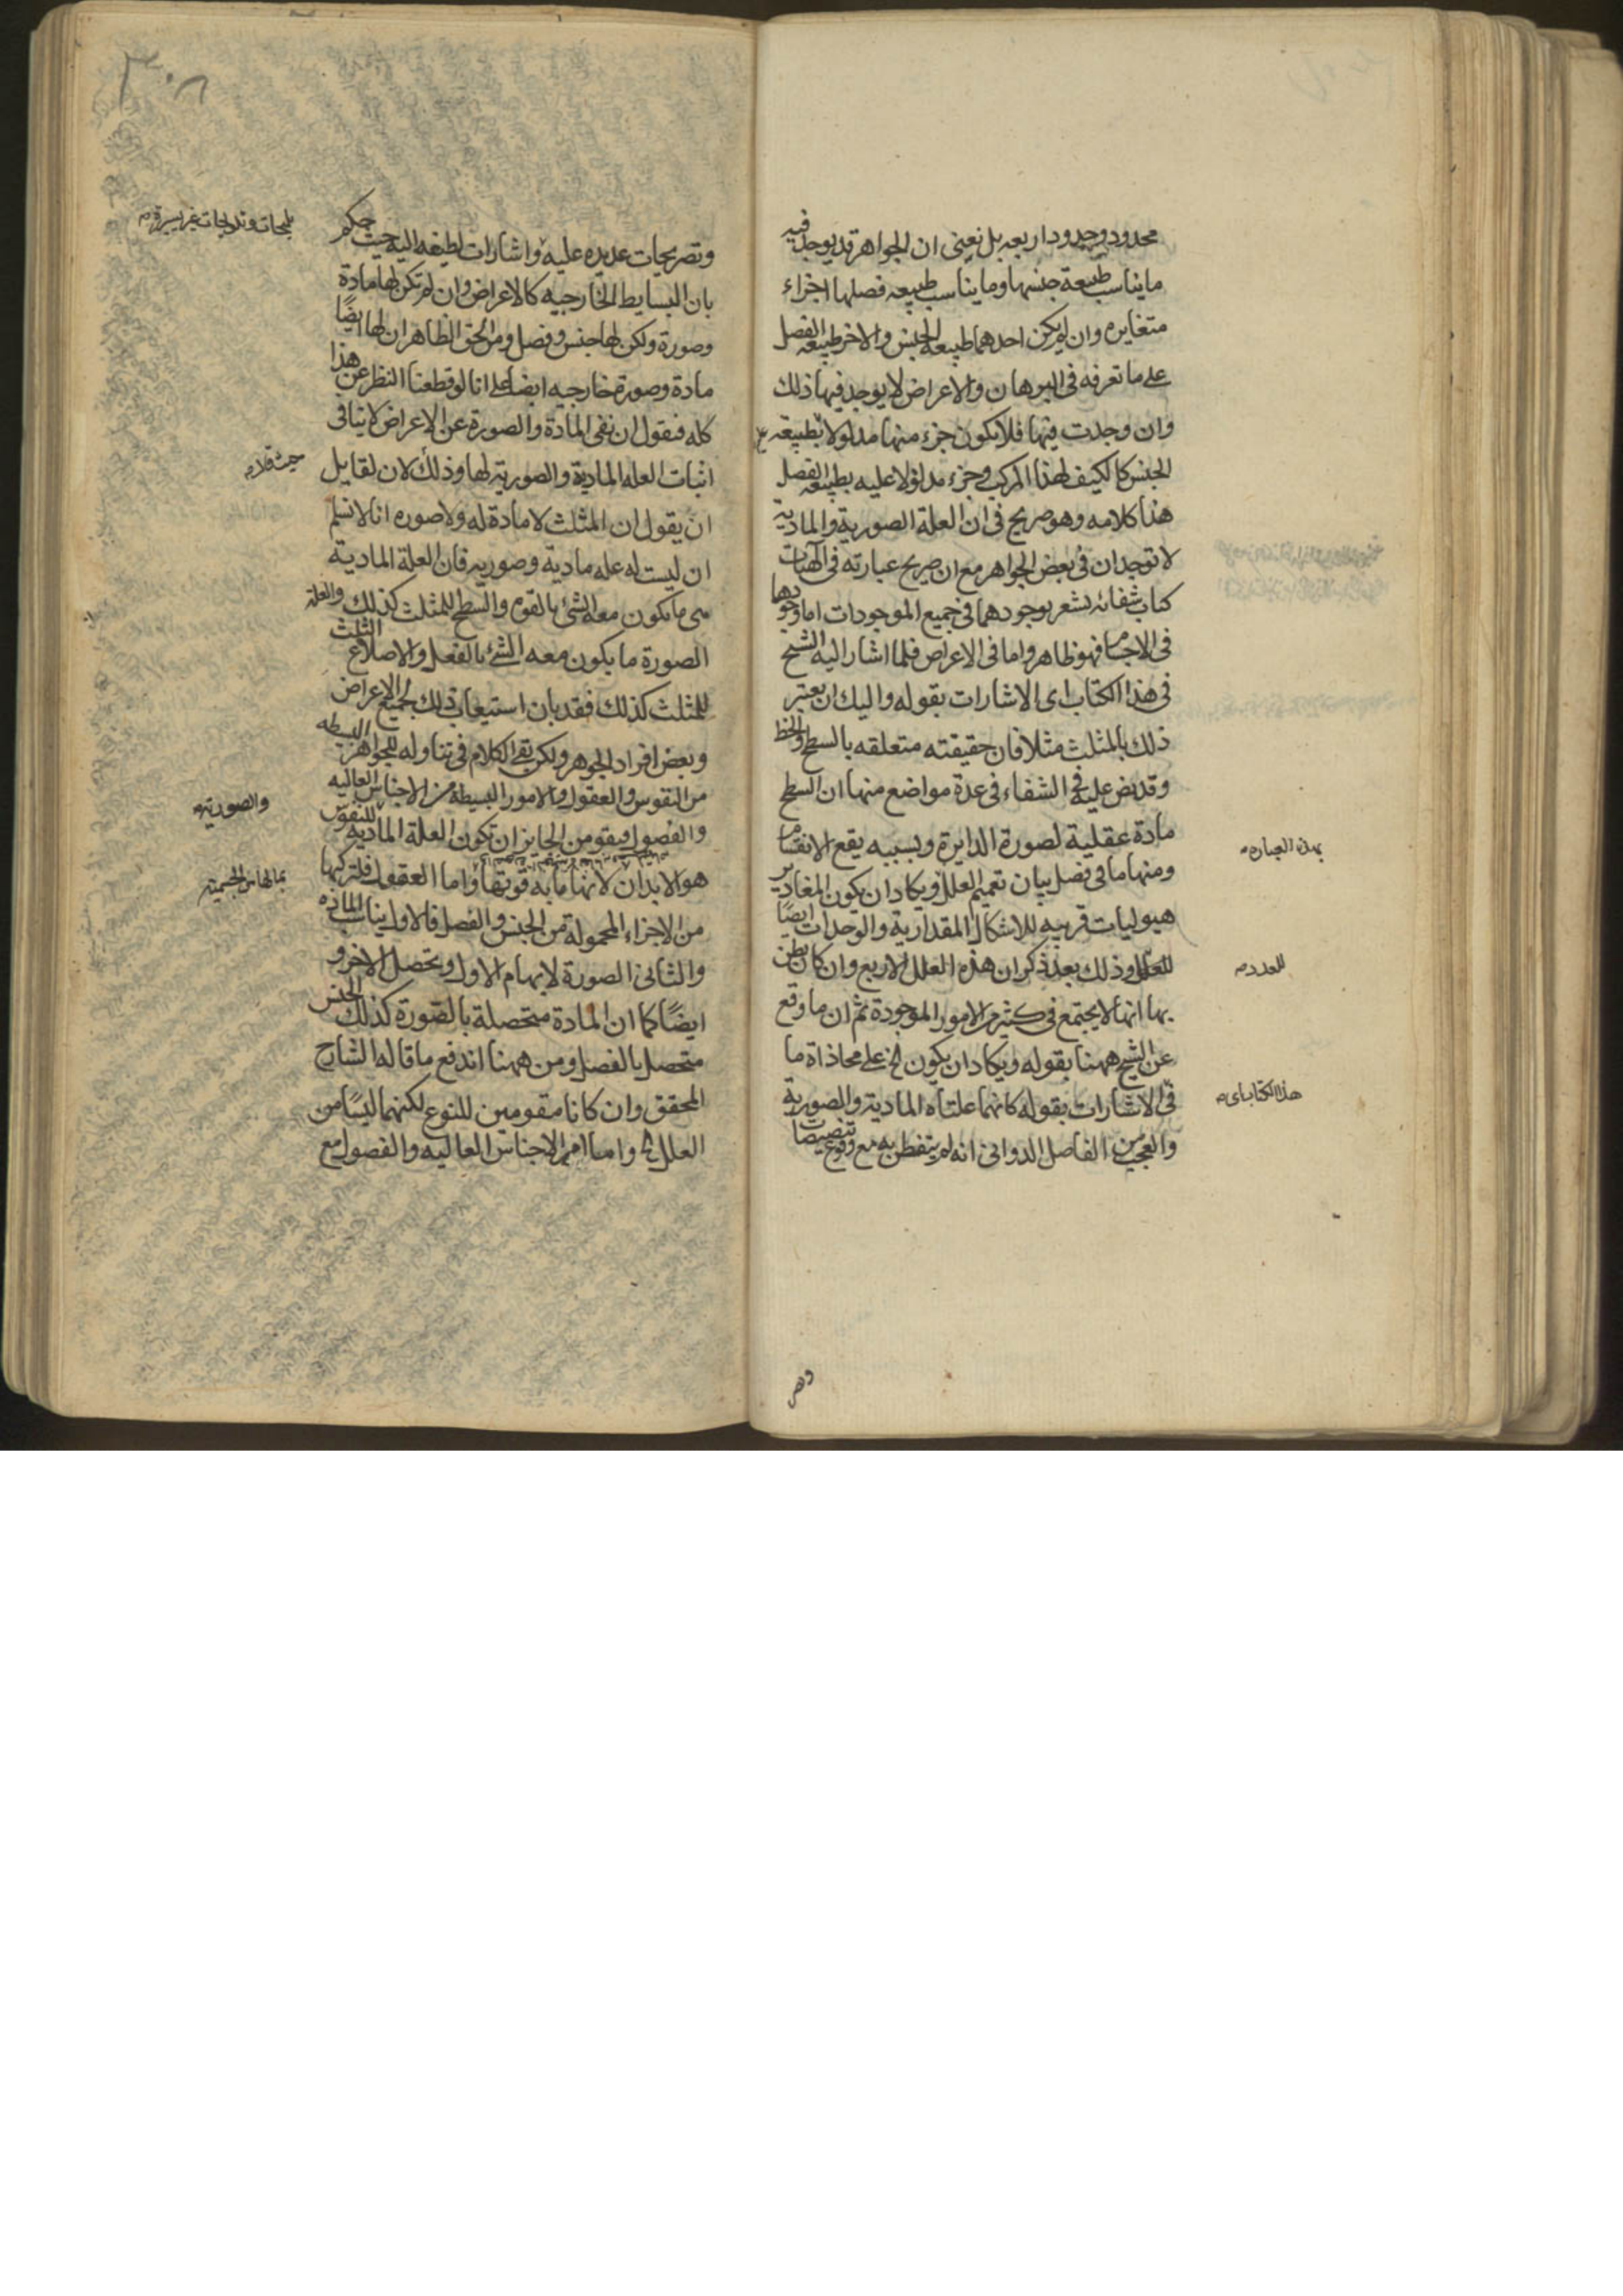 محدود وحدود اربعه بل نعنى ان الجواهر قد يوجد فيه
ما يناسب طبيعة جنسها وما يناسب طبيعه فصلها اجزاء
متغايره وان لم يكن احدهما طبيعه الجنس والاخر طبيعه الفصل
على ما تعرفه فى البرهان والاعراض لا يوجد فيها ذلك
وان وجدت فيها فلا يكون جزء منها مدلولا بطبيعه
الجنس كالكيف لهذا المركب وجزء مدلولا عليه بطبيعه الفصل
هذا كلامه وهو صريح فى ان العلة الصورية والمادية
لا توجدان فى بعض الجواهر مع ان صريح عبارته فى الهيات
كتاب شفائه يشعر بوجودهما فى جميع الموجودات اما وجودها
فى الاجسام فهو ظاهر واما فى الاعراض فلما اشار اليه الشيخ
فى هذا الكتاب اى الاشارات بقوله واليك ان يعتبر
ذلك بالمثلث مثلا فان حقيقته متعلقه بالسطح والخط
وقد نص عليه فى الشفاء فى عدة مواضع منها ان السطح
مادة عقلية لصورة الدايرة وبسببه يقع الانقسام
بهذه العباره
ومنها ما فى فصل بيان تعميم العلل ويكاد ان يكون المقادير
هيوليات قريبه للاشكال المقدارية والوحدات ايضًا
للعدد وذلك بعد ذكر ان هذه العلل الاربع وان كان يظن
للعدد
بها انها لا يجتمع فى كثير من الامور الموجودة ثم ان ما وقع
عن الشيخ ههنا بقوله ويكاد ان يكون الخ على محاذاة ما
فى الاشارات بقوله كانهما علتاه المادية والصورية
هذا الكتاب اى
والعجب من الفاضل الدوانى انه لم يتفطن به مع وقوع تنصيصات
وتصر
٣٠٨
وتصريحات عديده عليه واشارات لطيفه اليه حيث حكم
تلميحات وتلويحات غير يسيرة
بان البسايط الخارجيه كالاعراض وان لم تكن لها مادة
وصورة ولكن لها جنس وفصل ومن الحق الظاهر ان لها ايضًا
مادة وصورة خارجيه ايضا على انا لو قطعنا النظر عن هذا
كله فنقول ان نفى المادة والصورة عن الاعراض لا ينافى
اثبات العله المادية والصورية لها وذلك لان لقايل
ان يقول ان المثلث لا مادة له ولا صوره انا لا نسلم
ان ليست له عله مادية وصوريه فان العلة المادية
هى ما يكون معه الشئ بالقوه والسطح للمثلث كذلك والعلة
الصورة ما يكون معه الشئ بالفعل والاضلاع الثلث
للمثلث كذلك فقد بان استيعاب ذلك لجميع الاعراض
وبعض افراد الجوهر ولكن بقى الكلام فى تناوله للجواهر البسيطه
من النفوس والعقول والامور البسيطة من الاجناس العاليه
والصورية
والفصول فنقو من الجايز ان تكون العلة الماديه للنفوس
هو الابدان لانها ما به قوتها واما العقول فلتركبها
من الاجزاء المحمولة من الجنس والفصل فالاول يناسب الماده
والثانى الصورة لابهام الاول وتحصل الاخر و
ايضًا كما ان المادة متحصلة بالصورة كذلك الجنس
متحصل بالفصل ومن ههنا اندفع ما قاله الشارح
المحقق وان كانا مقومين للنوع لكنهما ليسًا من
العلل الخ واما امر الاجناس العاليه والفصول مع